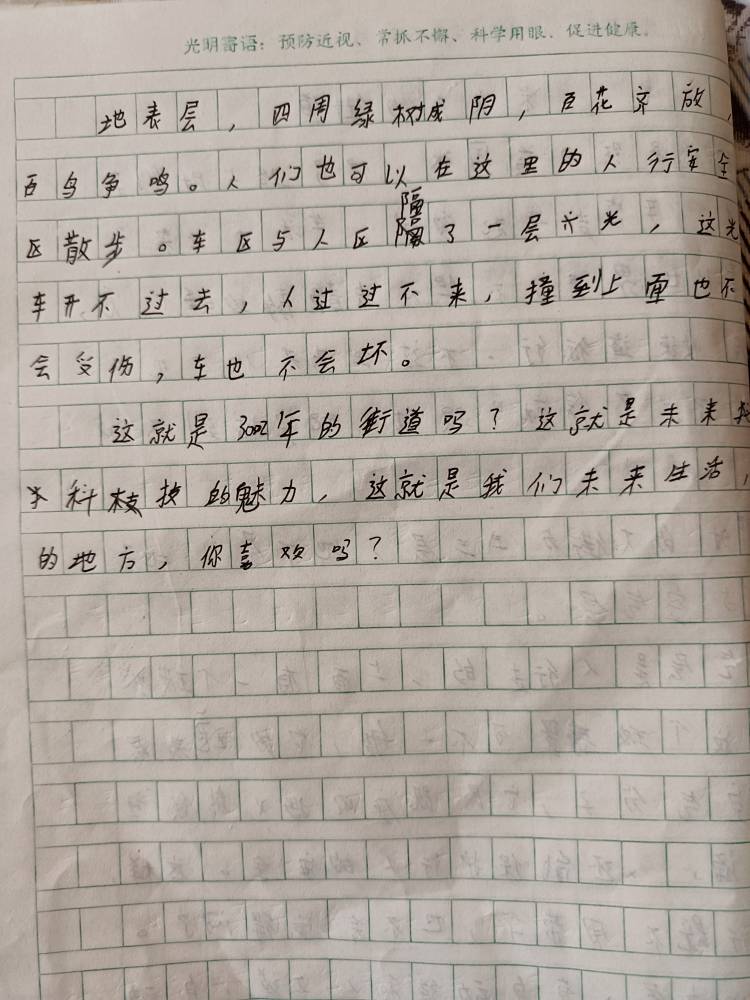 光明寄语：预防近视、常抓不懈、科学用眼、促进健康。
地表层，四周绿树成阴，百花齐放，
百鸟争鸣。人们也可以在这里的人行安全
区散步。车区与人区隔了一层光，这光
车开不过去，人过过不来，撞到上面也不
会受伤，车也不会坏。
这就是3002年的街道吗？这就是未来
科技的魅力，这就是我们未来生活，
的地方，你喜欢吗？